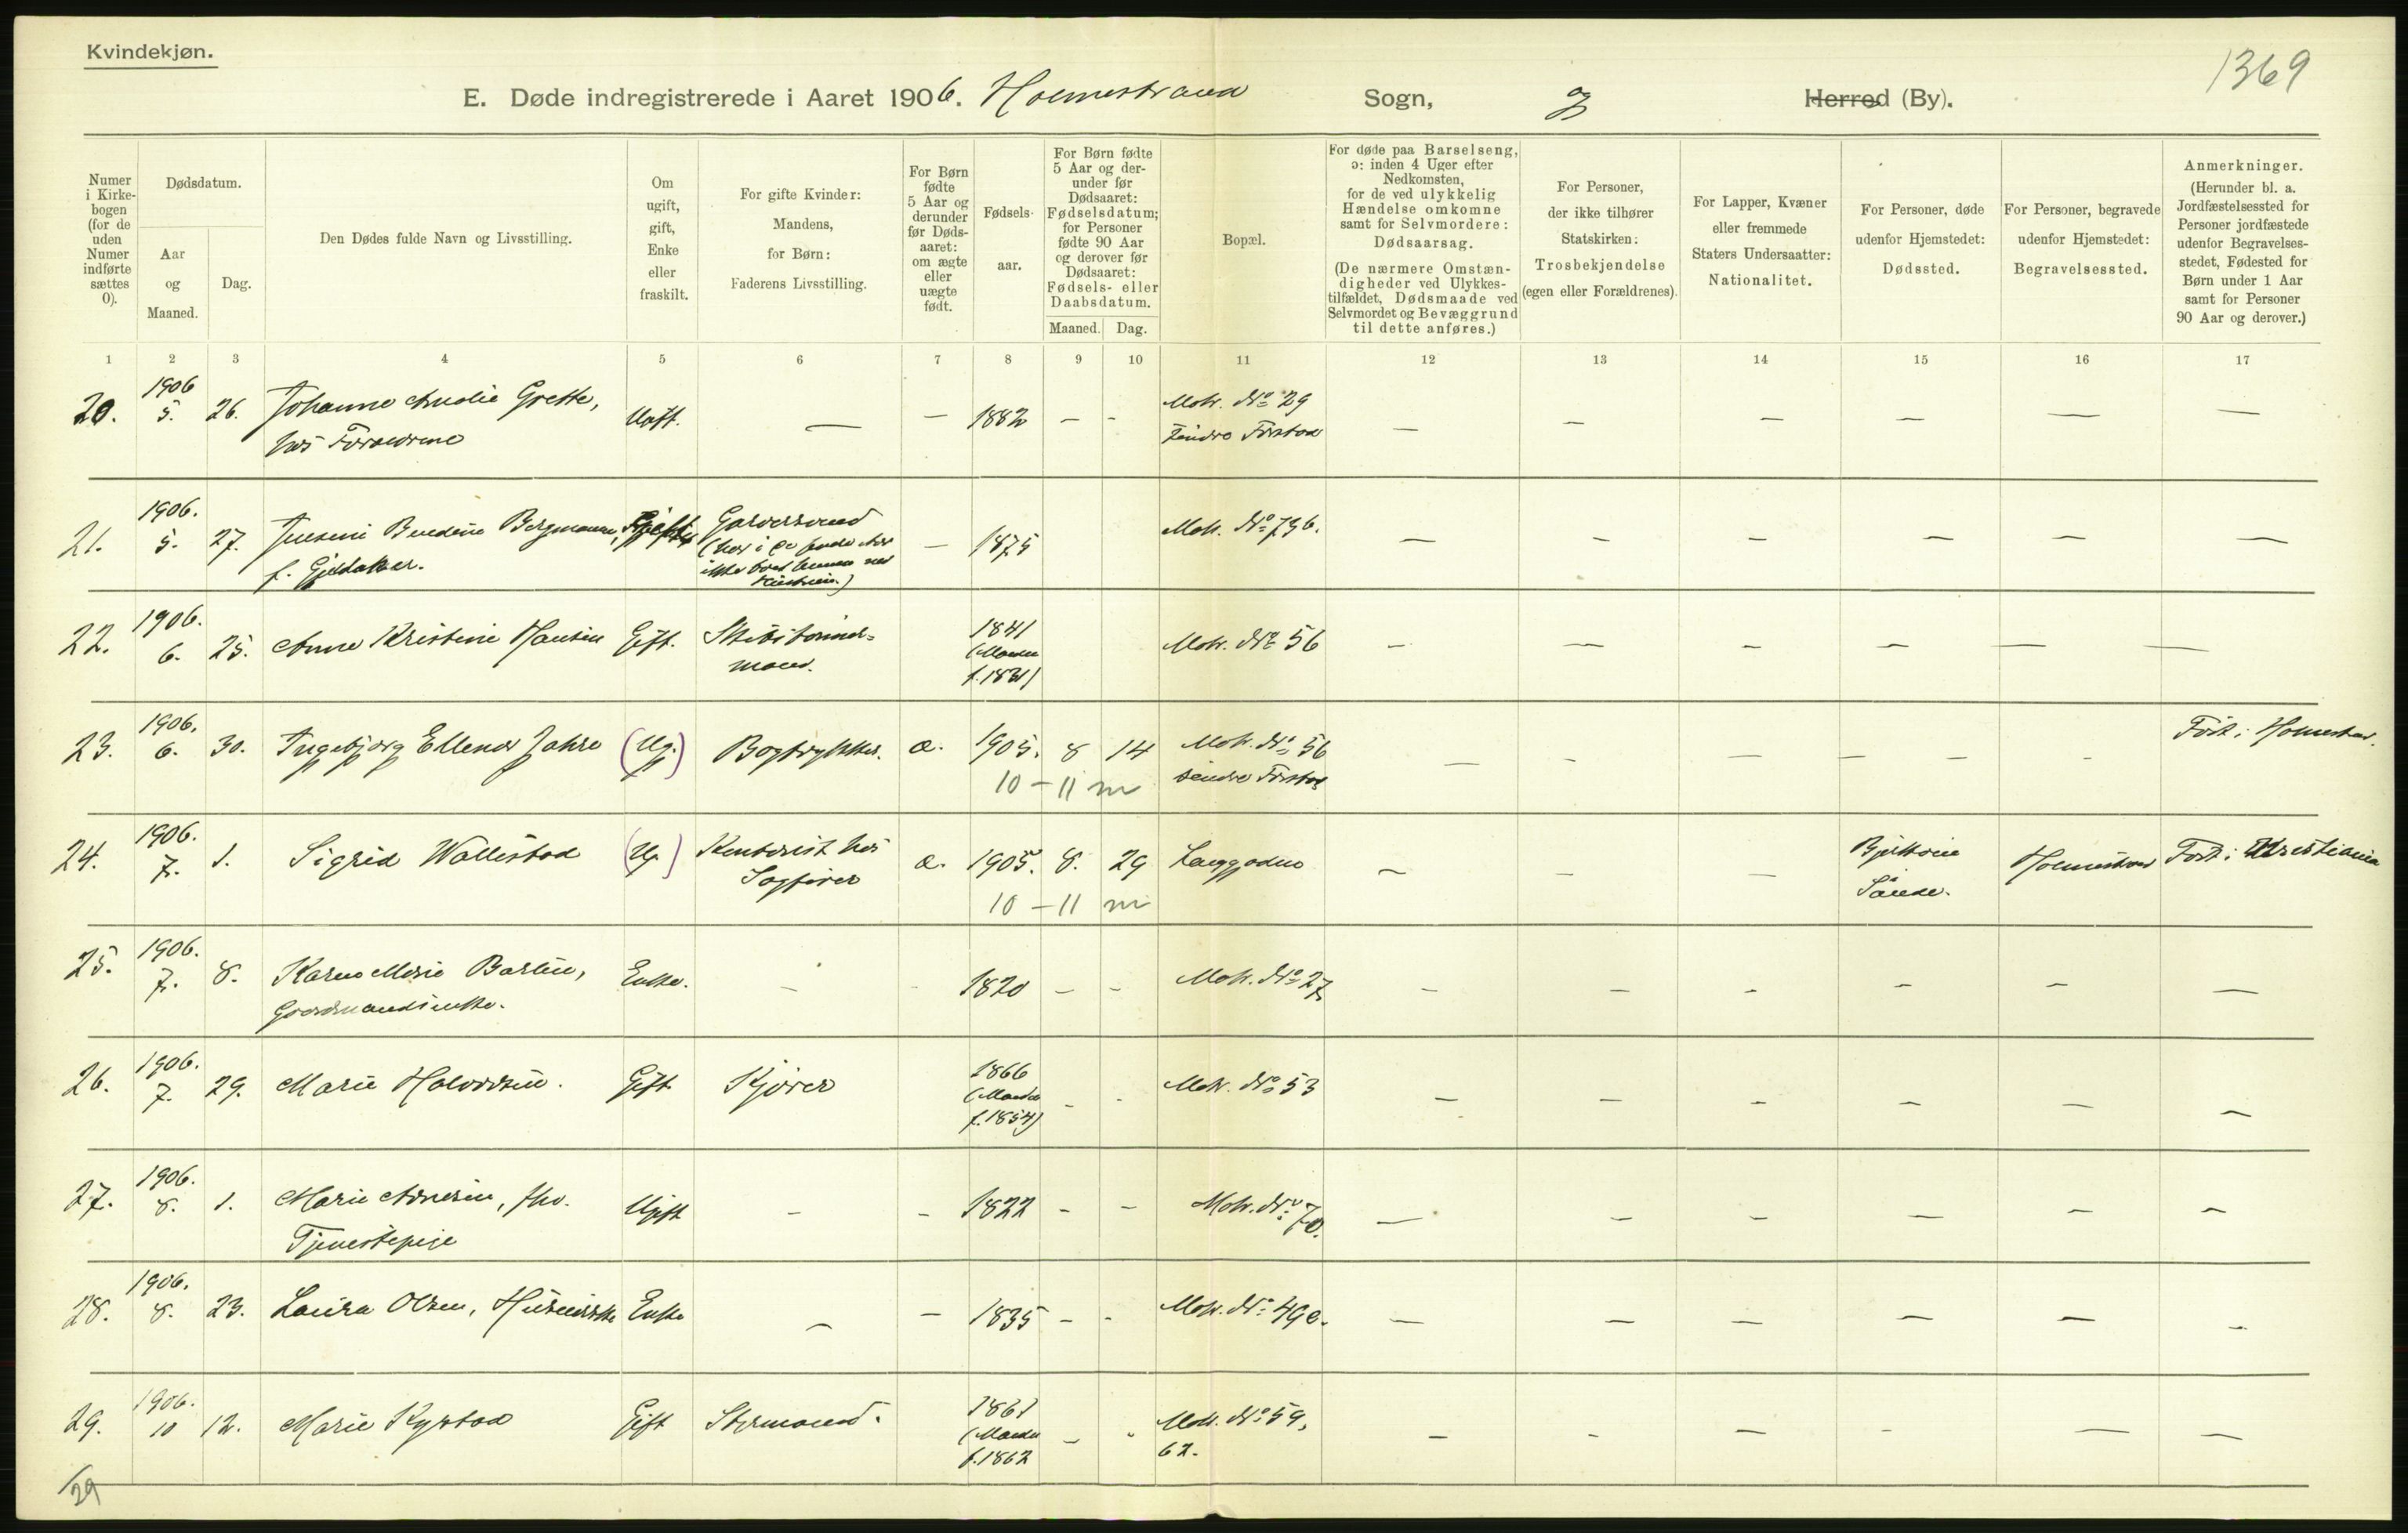 Kvindekjøn.
1369
E. Døde indregistrerede i Aaret 1906. Holmestrand Sogn, og Herred (By).
Numer i Kirkebogen (for de uden Numer indførte sættes 0).
Dødsdatum.
Aar og Maaned.
Dag.
Den Dødes fulde Navn og Livsstilling.
Om ugift, gift, Enke eller fraskilt.
For gifte Kvinder: Mandens, for Børn: Faderens Livsstilling.
For Børn fødte 5 Aar og derunder før Dødsaaret: om ægte eller uægte født.
Fødselsaar.
For Børn fødte 5 Aar og derunder før Dødsaaret: Fødselsdatum; for Personer fødte 90 Aar og derover før Dødsaaret: Fødsels- eller Daabsdatum.
Maaned. Dag.
Bopæl.
For døde paa Barselseng, ɔ: inden 4 Uger efter Nedkomsten, for de ved ulykkelig Hændelse omkomne samt for Selvmordere: Dødsaarsag.
(De nærmere Omstændigheder ved Ulykkestilfældet, Dødsmaade ved Selvmordet og Bevæggrund til dette anføres.)
For Personer, der ikke tilhører Statskirken: Trosbekjendelse (egen eller Forældrenes).
For Lapper, Kvæner eller fremmede Staters Undersaatter: Nationalitet.
For Personer, døde udenfor Hjemstedet: Dødssted.
For Personer, begravede udenfor Hjemstedet: Begravelsessted.
Anmerkninger.
(Herunder bl. a. Jordfæstelsessted for Personer jordfæstede udenfor Begravelsesstedet, Fødested for Børn under 1 Aar samt for Personer 90 Aar og derover.)
1 2 3 4 5 6 7 8 9 10 11 12 13 14 15 16 17
20. 1906 5. 26. Johanne Amalie Grette, Ugift. — — 1882 - - Matr. No 29 — — — — — —
hos Forældrene søndre Forstad
21. 1906. 5. 27. Bergmann, Gift Garversvend — 1875 Matr. No 73b. — — — — — —
f.
22. 1906. 6. 25. Anne Kristine Hansen Gift. 1841 Matr. No 56 — — — — — —
(Manden
f. 1841)
23. 1906. 6. 30. Ingebjørg Ellenor Jahre (Ug.) Bogtrykker. æ. 1905. 8 14 Matr. No 56 — — — — - Født i Holmestrand.
10 - 11 m søndre Forstad
24. 1906. 7. 1. Sigrid Wallestad (Ug.) Kontorist hos æ. 1905. 8. 29 Langgaden — — — Holmestrand Født i Kristiania
Sagfører Sande.
10 - 11 m
25. 1906. 7. 8. Karen Marie Enke. - - 1820 - - Matr. No 27 — — — — — —
Gaardmandsenke.
26. 1906. 7. 29. Marie Halvorsen. Gift Kjører 1866 - - Matr. No 53 — — — — — —
(Manden
f. 1854)
27. 1906. 8. 1. Marie fhv. Ugift - - 1822 - - Matr. No 70. — — — — — —
Tjenestepige
28. 1906. 8. 23. Laura Olsen, Enke — - 1835 - - Matr. No 49c. — — — — — -
29. 1906. 10 12. Marie Gift Styrmand. 1861 - - Matr. No 59, — - — - — —
(Manden 62.
f. 1862
/29